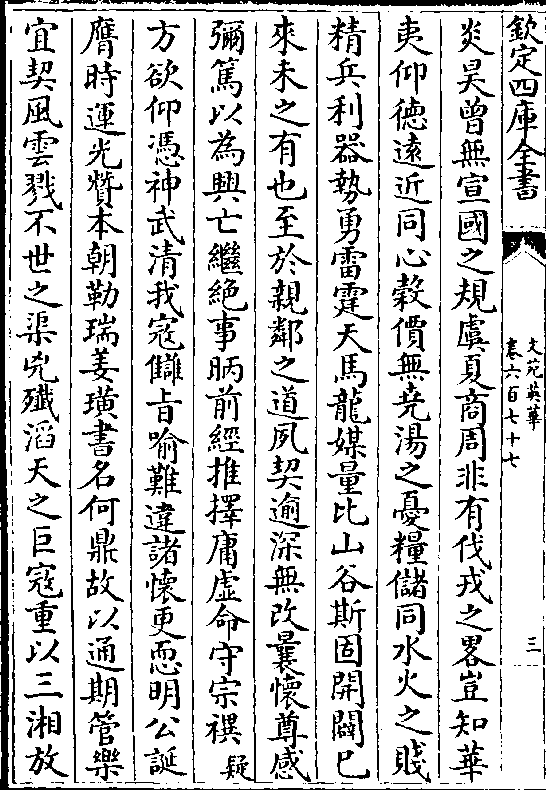 欽定四庫全書
文苑英華
卷六百七十七
三
炎昊曾無宣國之規虞夏商周非有伐戎之畧豈知華
夷仰徳遠近同心榖價無堯湯之憂糧儲同水火之賤
精兵利器勢勇雷霆天馬龍媒量比山谷斯固開闢已
來未之有也至於親鄰之道夙契逾深無改曩懐尊感
彌篤以為興亡繼絶事昞前經推擇庸虚命守宗禩疑
方欲仰憑神武清我宼讎㫖喻難違諸懐更恧明公誕
膺時運光賛本朝勒瑞姜璜書名何鼎故以通期管樂
宜契風雲戮不世之渠兇殲滔天之巨宼重以三湘放